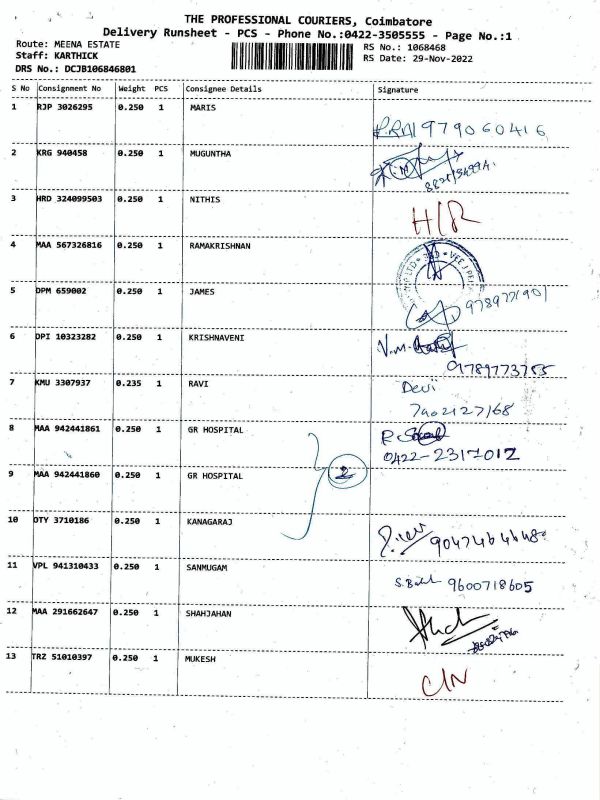 THE PROFESSIONAL COURIERS, Coimbatore
Delivery Runsheet - PCS - Phone No.:0422-3505555 - Page No.:1
Route: MEENA ESTATE
RS No.: 1068468
Staff: KARTHICK
RS Date: 29-Nov-2022
DRS No.: DCJB106846801
S No Consignment No Weight PCS Consignee Details Signature
1 RJP 3026295 0.250 1 MARIS
979060416
2 KRG 940458 0.250 1 MUGUNTHA
3 HRD 324099503 0.250 1 NITHIS
4 MAA 567326816 0.250 1 RAMAKRISHNAN
5 DPM 659002 0.250 1 JAMES
6 DPI 10323282 0.250 1 KRISHNAVENI V.M.
9789773755
7 KMU 3307937 0.235 1 RAVI Devi
7402127168
8 MAA 942441861 0.250 1 GR HOSPITAL
0422-2317012
9 MAA 942441860 0.250 1 GR HOSPITAL 2
10 OTY 3710186 0.250 1 KANAGARAJ
11 VPL 941310433 0.250 1 SANMUGAM 9600718605
12 MAA 291662647 0.250 1 SHAHJAHAN
13 TRZ 51010397 0.250 1 MUKESH